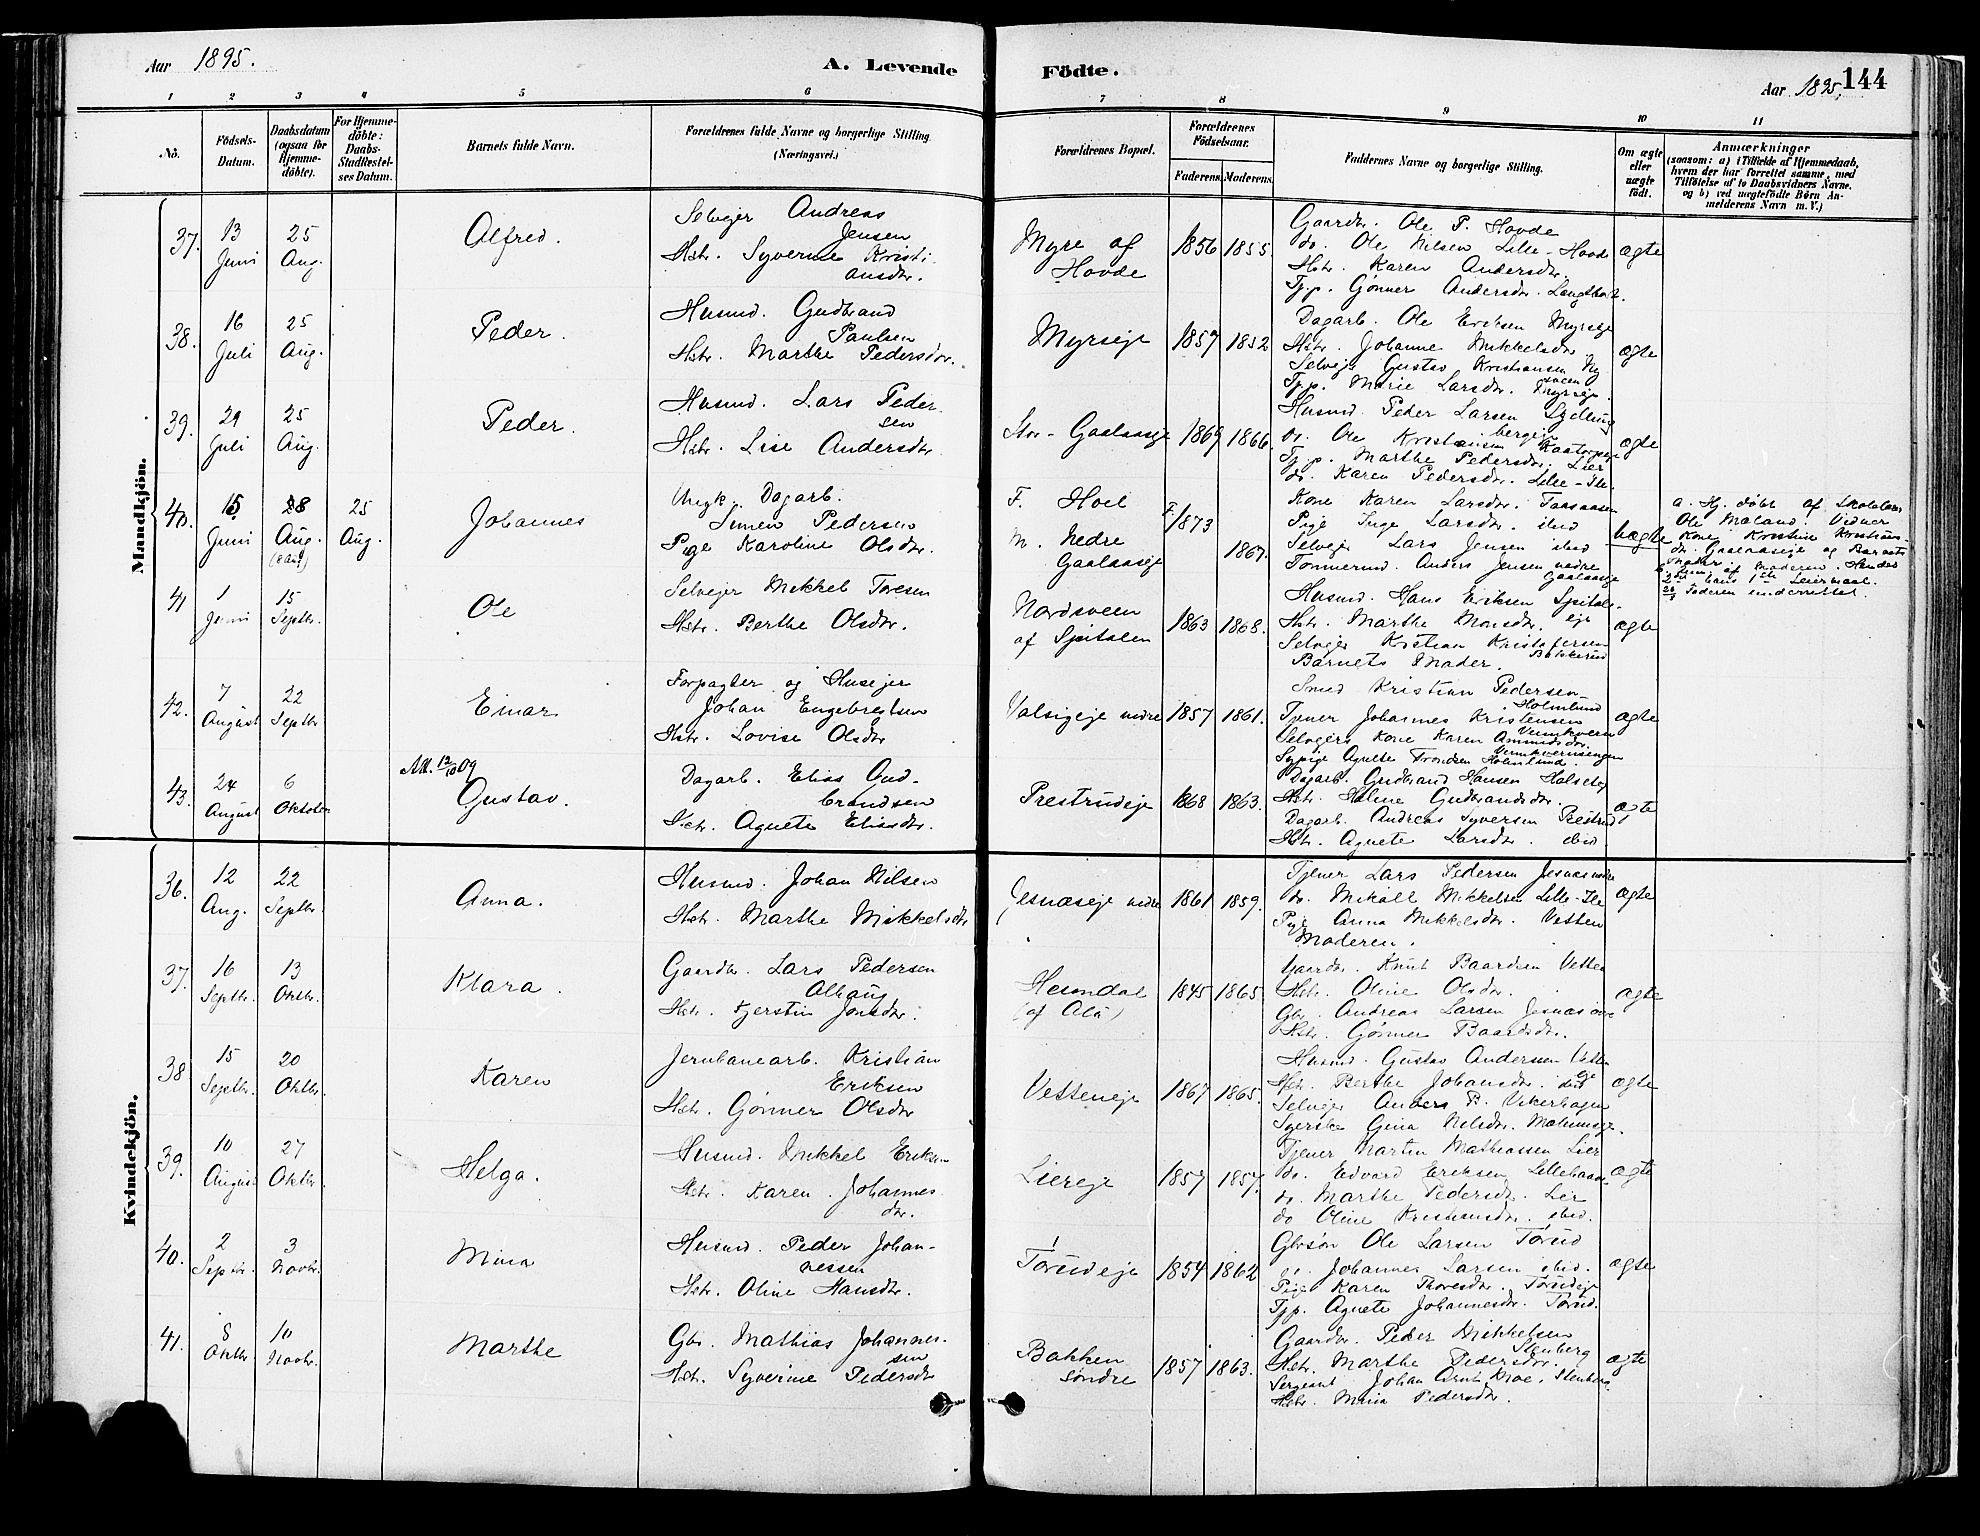 Aar 1895.
A. Levende
Födte.
Aar 1895.
144
1 2 3 4 5 6 7 8 9 10 11
No.
Födsels-Datum.
Daabsdatum (ogsaa for Hjemme-döbte).
For Hjemme-döbte: Daabs-Stadfestel-ses Datum.
Barnets fulde Navn.
Forældrenes fulde Navne og borgerlige Stilling
(Næringsvei.)
Forældrenes Bopæl.
Forældrenes Födselsaar.
Faderens. Moderens.
Faddernes Navne og borgerlige Stilling.
Om ægte eller uægte födt.
Anmærkninger
(saasom: a) i Tilfælde af Hjemmedaab,
hvem der har forrettet samme, med
Tilföielse af to Daabsvidners Navne,
og b) ved uegtefödte Börn An-
melderens Navn m. V.)
Mandkjön.
37. 13 Juni 25 Aug. Alfred.
Selvejer Andreas
Jensen
Hstr. Syverine Kristi-
ansdtr.
Myre af
Hovde
1856 1855.
Gaardbr. Ole P. Hovde
do. Ole Nilsen Lille-Hovde
Hstr. Karen Andersdtr.
Tjp. Gønner Andersdtr.
ægte
38. 16 Juli 25 Aug. Peder.
Husmd. Gudbrand
Paulsen
Hstr. Marthe Pedersdtr.
Myrseje 1857 1852
Dagarb. Ole Eriksen Myrseje
Hstr. Johanne Mikkelsdtr
Selvejer Gustav Kristiansen
Tjp. Marie Larsdtr. Myrseje.
ægte
39. 29 Juli 25 Aug. Peder.
Husmd. Lars Peder-
sen
Hstr. Lise Andersdtr.
Stor-Gaalaaseje 1869 1866.
Husmd. Peder Larsen
do. Ole Kristiansen
Tjp. Marthe Pedersdtr. Lier
do. Karen Pedersdtr. Lille-Ile.
ægte
40. 15 Juni 28 Aug. 25 Aug. Johannes
Ungk. Dagarb.
Simen Pedersen
Pige Karoline Olsdtr.
F. Hoel
M. Nedre
Gaalaaseje
F. 1873
1867.
Kone Karen Larsdtr.
Pige Inge Larsdtr. ibid
Selvejer Lars Jensen ibid
Tømmermd. Anders Jensen nedre
Gaalaaseje
uægte
a. Hj. døbt af Skolelærer
Ole Moland. Vidner
Kone Kristine Kristians-
dtr. Gaalaaseje og Barnets
Moder
41 1 Juni 15 Septbr. Ole
Selvejer Mikkel Toresen
Hstr. Berthe Olsdtr.
Nordsveen
af Spitalen
1863 1868.
Husmd. Hans Eriksen Spital-
eje
Hstr. Marthe Monsdtr.
Selvejer Kristian Kristofersen
Barnets Moder.
ægte
42. 7 August 22 Septbr. Einar
Forpagter og Husejer
Johan Engebretsen
Hstr. Lovise Olsdtr
Valsigeje nedre 1857 1861.
Smed Kristian Pedersen
Holmlund
Tjener Johannes Kristensen
Selvejers Kone Karen Amundsdtr.
Sypige Agnethe Trondsen Holmlund.
ægte
43. 24 August 6 Oktober Att. 12/10 09 Gustav.
Dagarb. Elias Gud-
brandsen
Hstr. Agnete Eliasdtr.
Prestrudeje 1868 1863.
Dagarb. Gudbrand Hansen
Hstr. Helene Gudbrandsdtr.
Dagarb. Andreas Syversen Prestrud
Hstr. Agnete Larsdtr. ibid
ægte
Kvindekjön.
36. 12 Aug. 22 Septbr. Anna.
Husmd. Johan Nilsen
Hstr. Marthe Mikkelsdtr
Jesnæseje nedre 1861 1859.
Tjener Lars Pedersen Jesnæs nedre
do. Mikall Mikkelsen Lille-Ile
Pige Anna Mikkelsdtr. Vetten
Moderen.
ægte
37. 16 Septbr. 13 Oktbr. Klara.
Gaardbr. Lars Pedersen
Alhaug
Hstr. Kjerstin Jonsdtr.
Hemdal
1845 1865
Gaardbr. Knut Baardsen Vetten
Hstr. Oline Olsdtr.
Gbr. Andreas Larsen Jesnæs
Hstr. Gønner Baardsdtr.
ægte
38 15 Septbr. 20 Oktbr. Karen
Jernbanearb. Kristian
Eriksen
Hstr. Gønner Olsdtr
Vetteneje 1867 1865.
Husmd. Gustav Andersen Vetten-
eje
Hstr. Berthe Johansdtr. ibid
Selvejer Anders P. Vikerhagen
Syerske Gina Nilsdtr.
ægte
39. 10 August 27 Oktbr. Helga.
Husmd. Mikkel Eriksen
Hstr. Karen Johannes-
dtr.
Liereje 1857 1857.
Tjener Martin Mathiassen Lier
do. Edvard Eriksen
do. Marthe Pedersdtr. Lier
do Oline Kristiansdtr. ibid.
ægte
40. 2 Septbr. 3 Novbr. Mina
Husmd. Peder Johan-
nessen
Hstr. Oline Hansdtr.
Torudeje 1854 1862
Gbrsøn Ole Larsen Torud
do. Johannes Larsen ibid.
Pige Karen Thoresdtr. Torudeje
Tjp. Agnete Johannesdtr. Torud.
ægte
41. 8 Oktbr 10 Novbr. Marthe
Gbr. Mathias Johannes-
sen
Hstr. Syverine Pedersdtr
Bakken
søndre
1857 1863.
Gaardbr. Peder Mikkelsen
Stenberg
Hstr. Marthe Pedersdtr.
Sergeant Johan Arnt Moe, Stenberg
Hstr. Mina Pedersdtr.
ægte